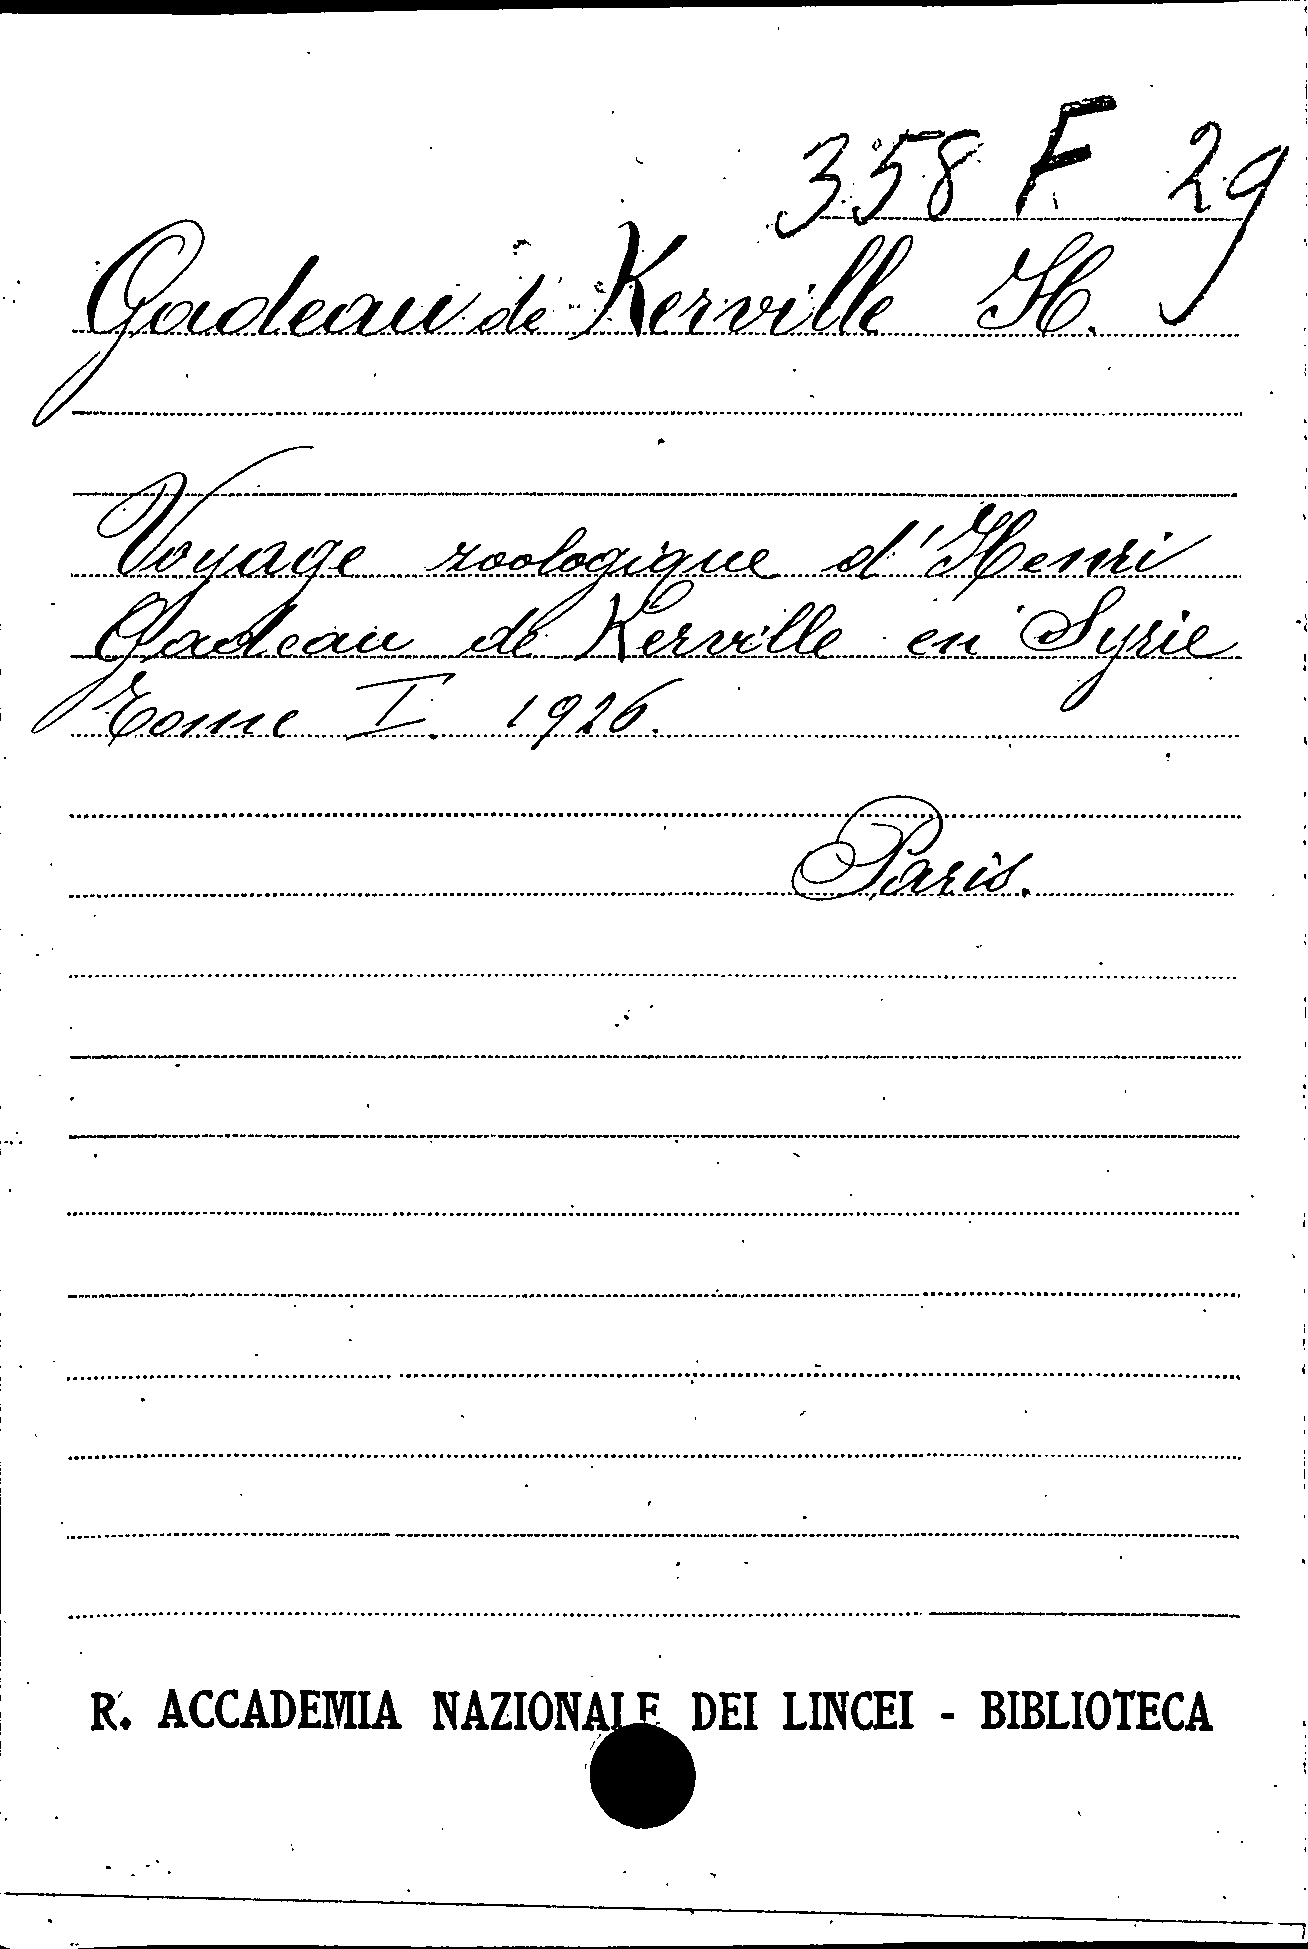 358 F 29
Gadeau de Kerville H.
Voyage zoologique d'Henri
Gadeau de Kerville en Syrie
Tome I. 1926.
Paris.
R. ACCADEMIA NAZIONALE DEI LINCEI - BIBLIOTECA